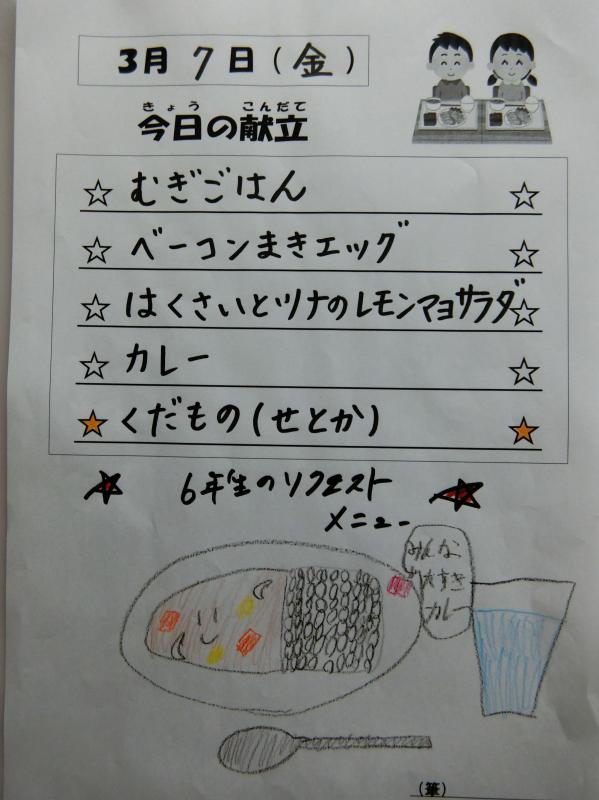 3月7日(金)
きょう こんだて
今日の献立
☆ むぎごはん ☆
☆ ベーコンまきエッグ ☆
☆ はくさいとツナのレモンマヨサラダ ☆
☆ カレー ☆
★ くだもの(せとか) ★
★ 6年生のリクエスト ★
メニュー
みんな
大すき
カレー
(筆)